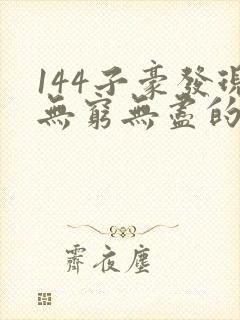 144子豪發現
無窮無盡的
霽夜塵